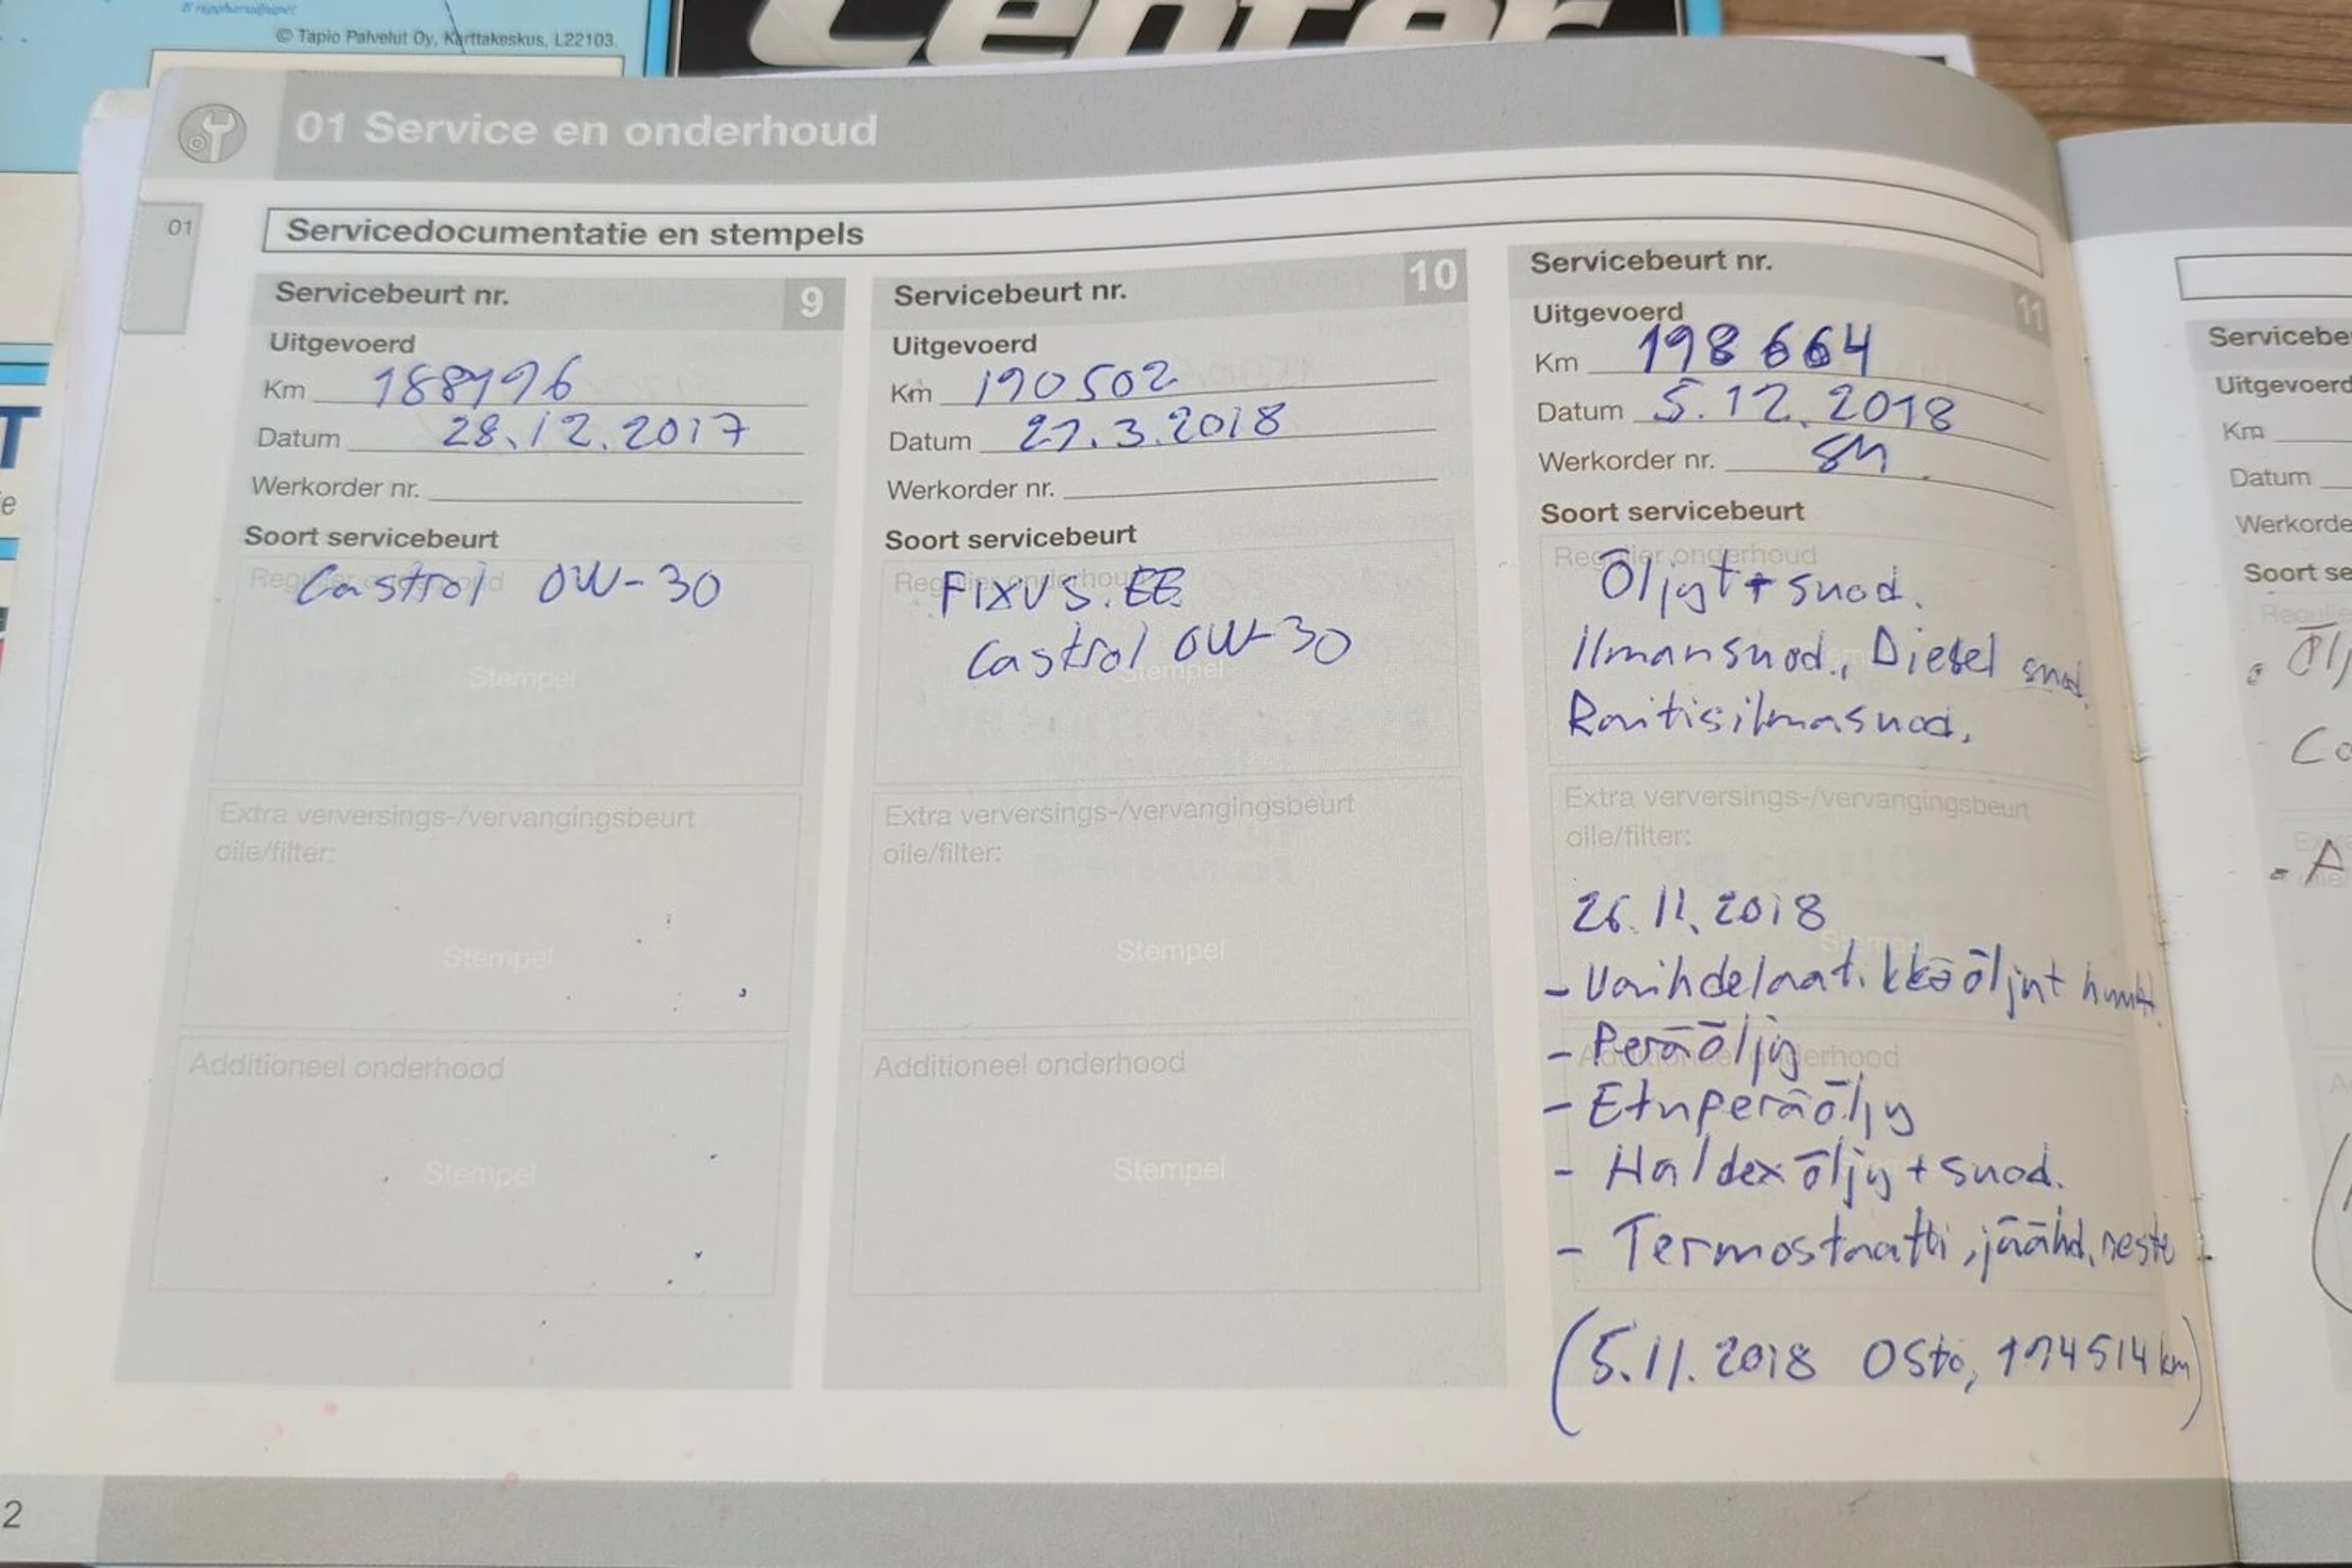 © Tapio Palvelut Oy, Karttakeskus, L22103.
Center
01 Service en onderhoud
01
Servicedocumentatie en stempels
Servicebeurt nr. 9
Uitgevoerd
Km 188196
Datum 28.12.2017
Werkorder nr.
Soort servicebeurt
Regulier onderhoud
Castrol 0W-30
Stempel
Extra verversings-/vervangingsbeurt
oile/filter:
Stempel
Additioneel onderhoud
Stempel
Servicebeurt nr. 10
Uitgevoerd
Km 190502
Datum 27.3.2018
Werkorder nr.
Soort servicebeurt
Regulier onderhoud
FIXUS.EE
Castrol 0W-30
Stempel
Extra verversings-/vervangingsbeurt
oile/filter:
Stempel
Additioneel onderhoud
Stempel
Servicebeurt nr. 11
Uitgevoerd
Km 198 664
Datum 5.12.2018
Werkorder nr.
Soort servicebeurt
Regulier onderhoud
Öljyt + suod.
Ilmansuod., Diesel suod.
Raitisilmasuod.
Extra verversings-/vervangingsbeurt
oile/filter:
26.11.2018
Stempel
- Vaihdelaatikkoöljyt
- Peräöljy
Additioneel onderhood
- Etuperäöljy
- Haldex öljy + suod.
- Termostaatti, jäähd.neste
(5.11.2018 Osto, 194514 km)
2
Uitgevoerd
Km
Datum